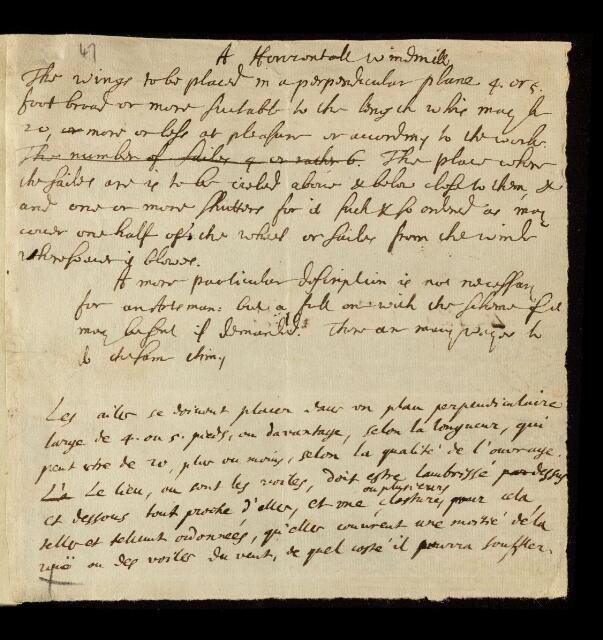 47
A Horrizontall windmill
The wings to be placed in a perpendicular plane 4. or 5.
foot broad or more suitable to the length which may be
20, or more or less at pleasure or according to the work.
The number of sailes 4 or rather 6. The place where
the sailes are is to be cieled above & below close to them, &
and one or more shutters for it such & so ordered as may
cover one half of the wheel or sailes from the winde
wheresoever it blowes.
A more particular description is not necessary
for an Artsman: but a full one with the scheme of it
may be sent if demanded. There are many wayes to
do the same thing
Les ailes se doivent placer dans un plan perpendiculaire
large de 4. ou 5. pieds, ou davantage, selon la longueur, qui
peut etre de 20, plus ou moins, selon la qualité de l'ouvrage.
Le lieu, ou sont les voiles, doit estre lambrissé par dessus
ou plusieurs
et dessous tout proche d'elles, et une clostures, pour cela
telles et tellement ordonnées, qu'elles couvrent une moitié de la
roüe ou des voiles du vent, de quel costé il pourra souffler.